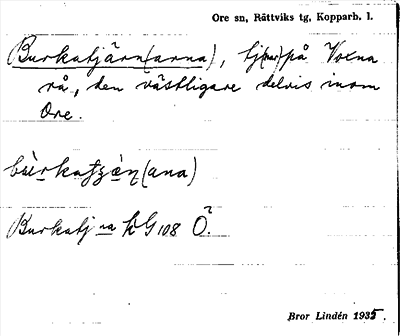 Ore sn, Rättviks tg, Kopparb. l.
Burkatjärn(arna), tj(nar) på Voxna
rå, den västligare delvis inom
Ore.
(ana)
Burkatj na kG 108 Ö
Bror Lindén 1935.